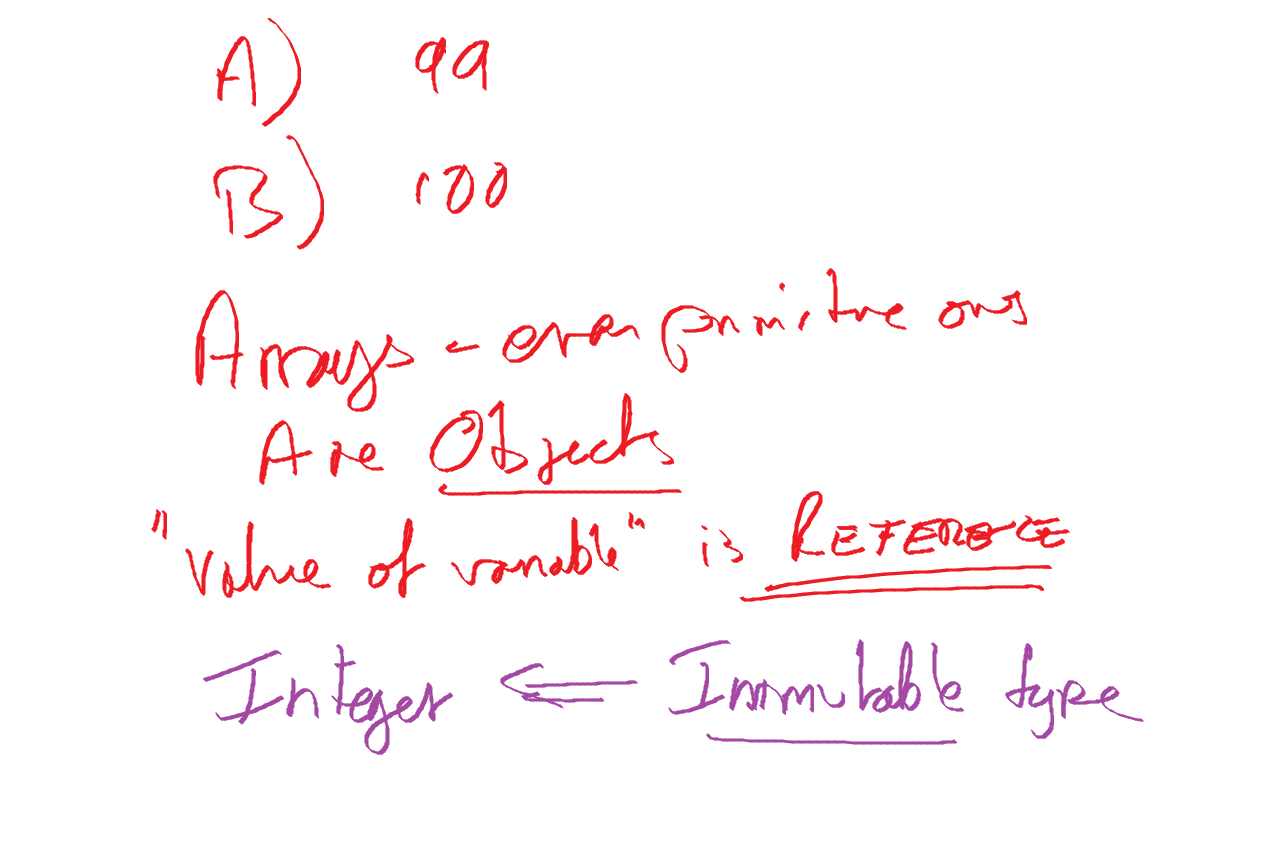 A) 99
B) 100
Arrays - even primitive ones
Are Objects
"value of variable" is REFERENCE
Integer ⇐ Immutable type